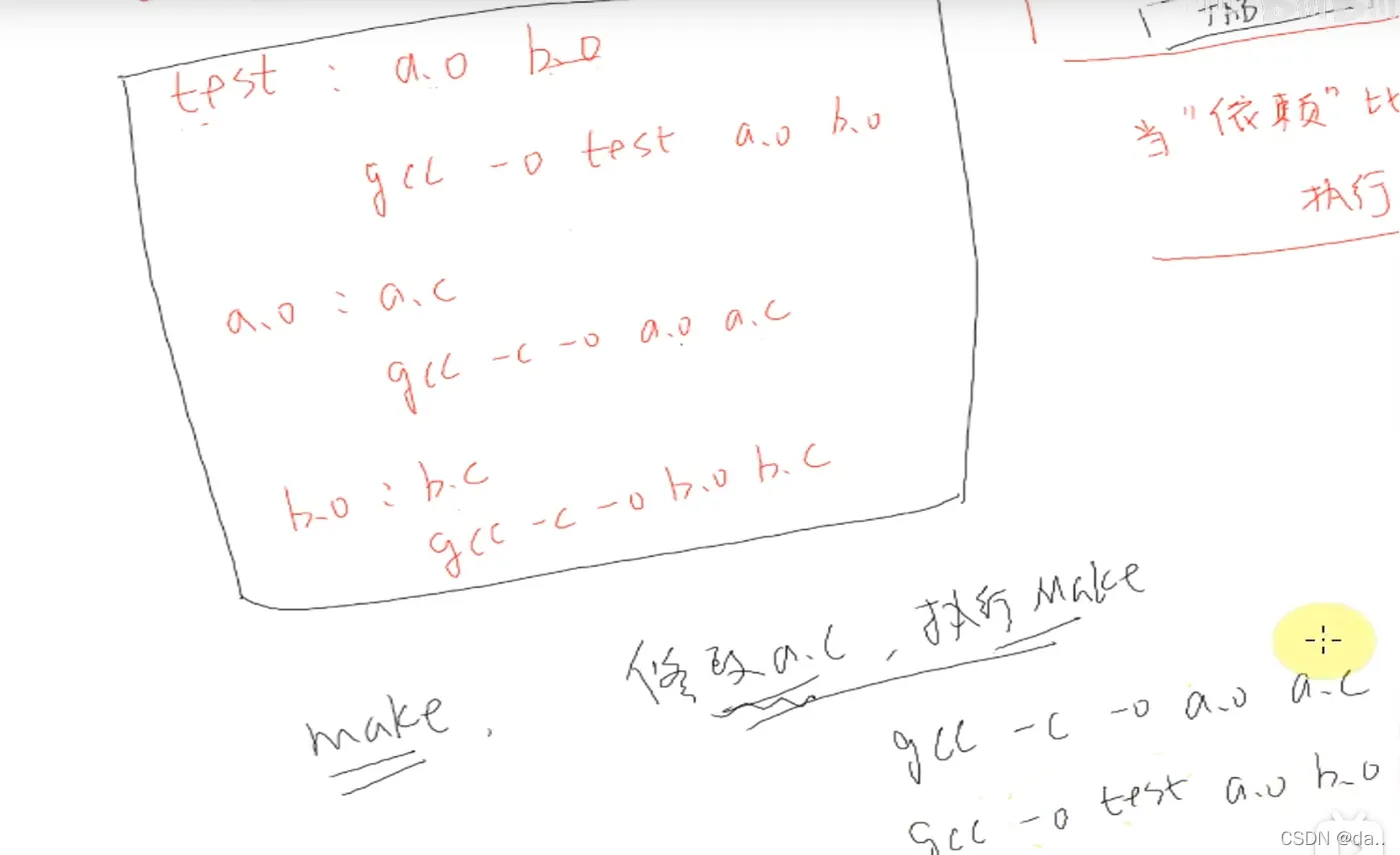 test : a.o b.o
gcc -o test a.o b.o
a.o : a.c
gcc -c -o a.o a.c
b.o : b.c
gcc -c -o b.o b.c
当"依赖"比
执行
make,
修改a.c, 执行make
gcc -c -o a.o a.c
gcc -o test a.o b.o
CSDN @da..